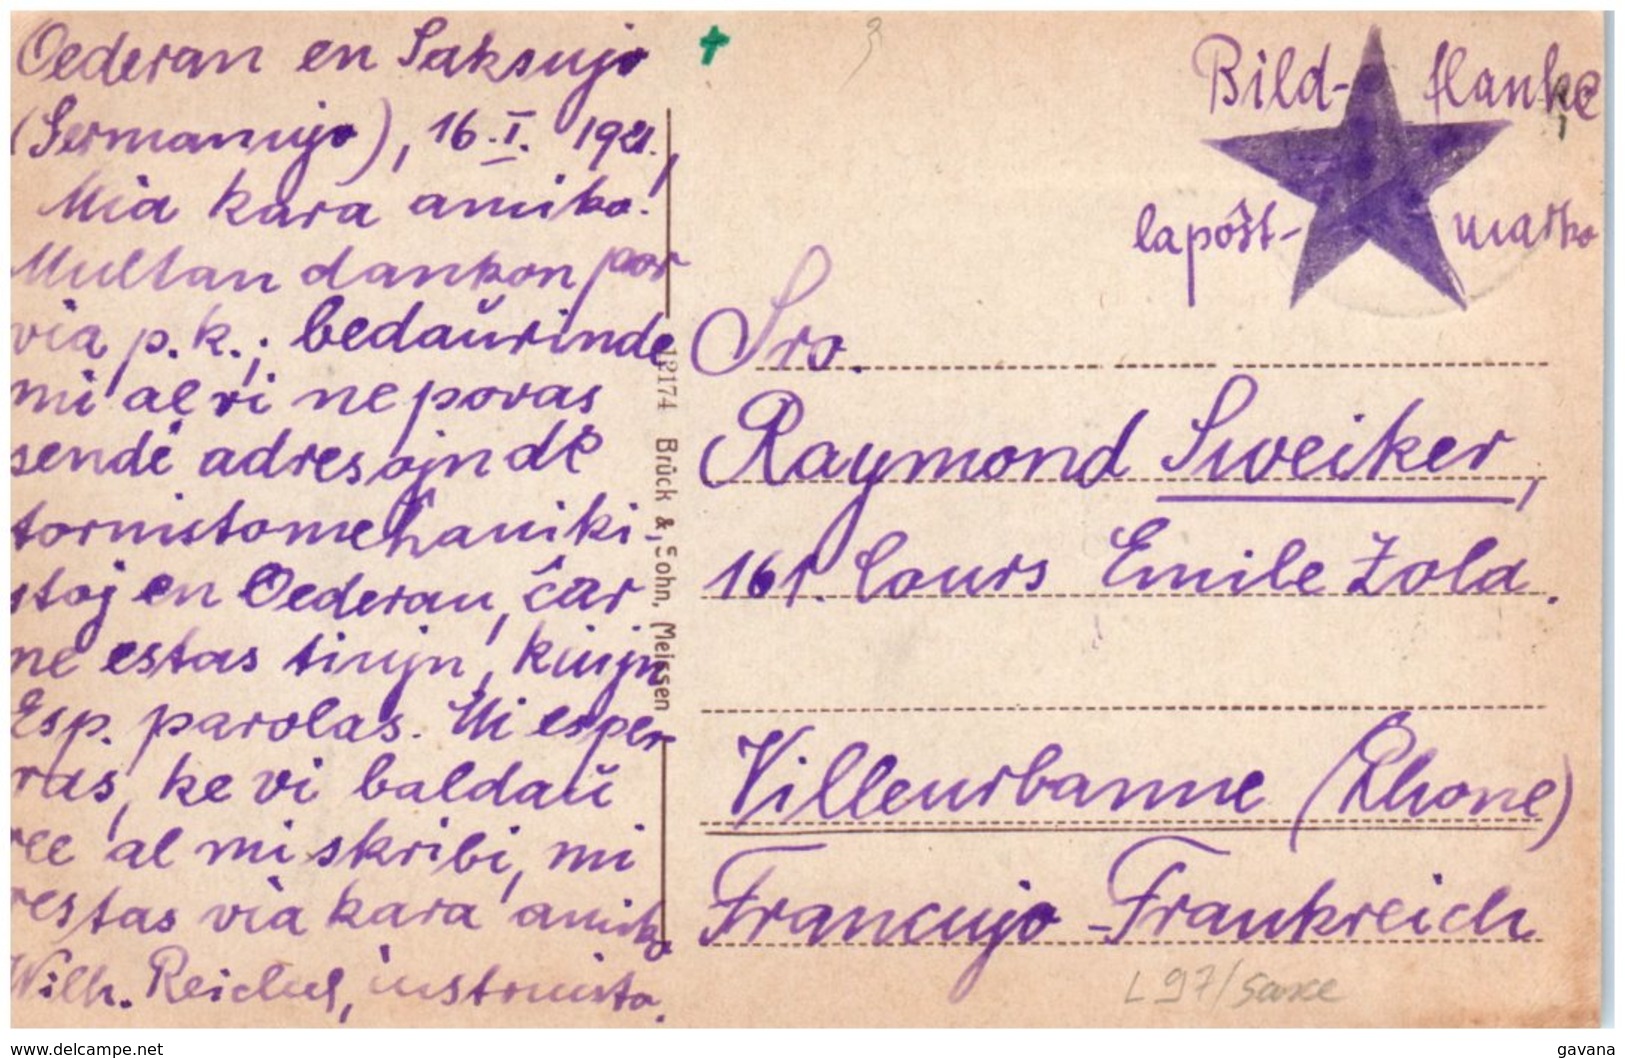 Oederan en Saksujo
(Germanujo), 16.I. 1921.
Mia kara amiko!
Multan dankon por
via p.k.; bedaŭrinde
mi al vi ne povas
sendi adresojn de
tornistomehaniki-
stoj en Oederan, ĉar
ne estas tiujn, kiujn
Esp. parolas. Mi espe-
ras, ke vi baldaŭ
ree al mi skribi, mi
restas via kara amiko
Wilh. Reichel, instruisto.
12174 Brück & Sohn, Meissen
Bild-
lapoŝt-
marko
Sro.
Raymond Sweiker,
161. Cours Emile Zola.
Villeurbanne (Rhone)
Francujo - Frankreich
L 97/Saxe
www.delcampe.net
gavana